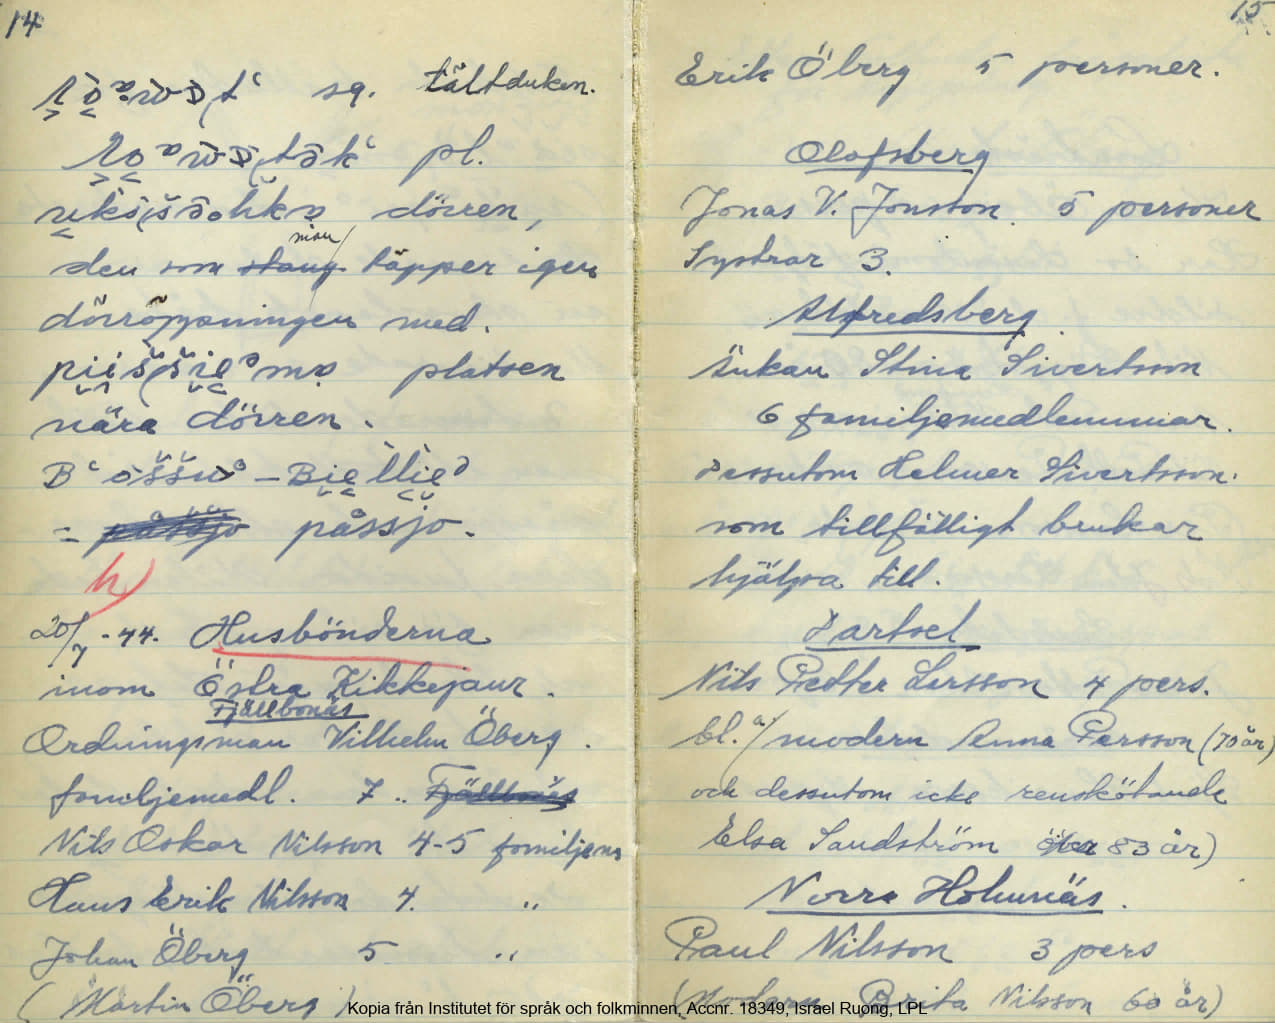 14
sg. tältduken.
pl.
dörren,
den som stang man täpper igen
dörröppningen med.
platsen
nära dörren.
= påssjo påssjo.
h)
20/7 -44. Husbönderna
inom Östra Kikkejaur.
Fjällbonäs
Ordningsman Vilhelm Öberg.
familjemedl. 7 .. Fjällbonäs
Nils Oskar Nilsson 4-5 familjem
Hans Erik Nilsson 4. "
Johan Öberg 5 "
(Martin Öberg)
15
Erik Öberg 5 personer.
Olofsberg
Jonas V. Jonsson 5 personer
Systrar 3.
Alfredsberg
Änkan Stina Sivertsson
6 familjemedlemmar.
Dessutom Helmer Sivertsson.
som tillfälligt brukar
hjälpa till.
Partsel
Nils Petter Larsson 4 pers.
bl.a/ modern Anna Persson (70 år)
och dessutom icke renskötande
Elsa Sandström 83 år)
Norra Holmnäs.
Paul Nilsson 3 pers
(Modern Brita Nilsson 60 år)
Kopia från Institutet för språk och folkminnen, Accnr. 18349, Israel Ruong, LPL